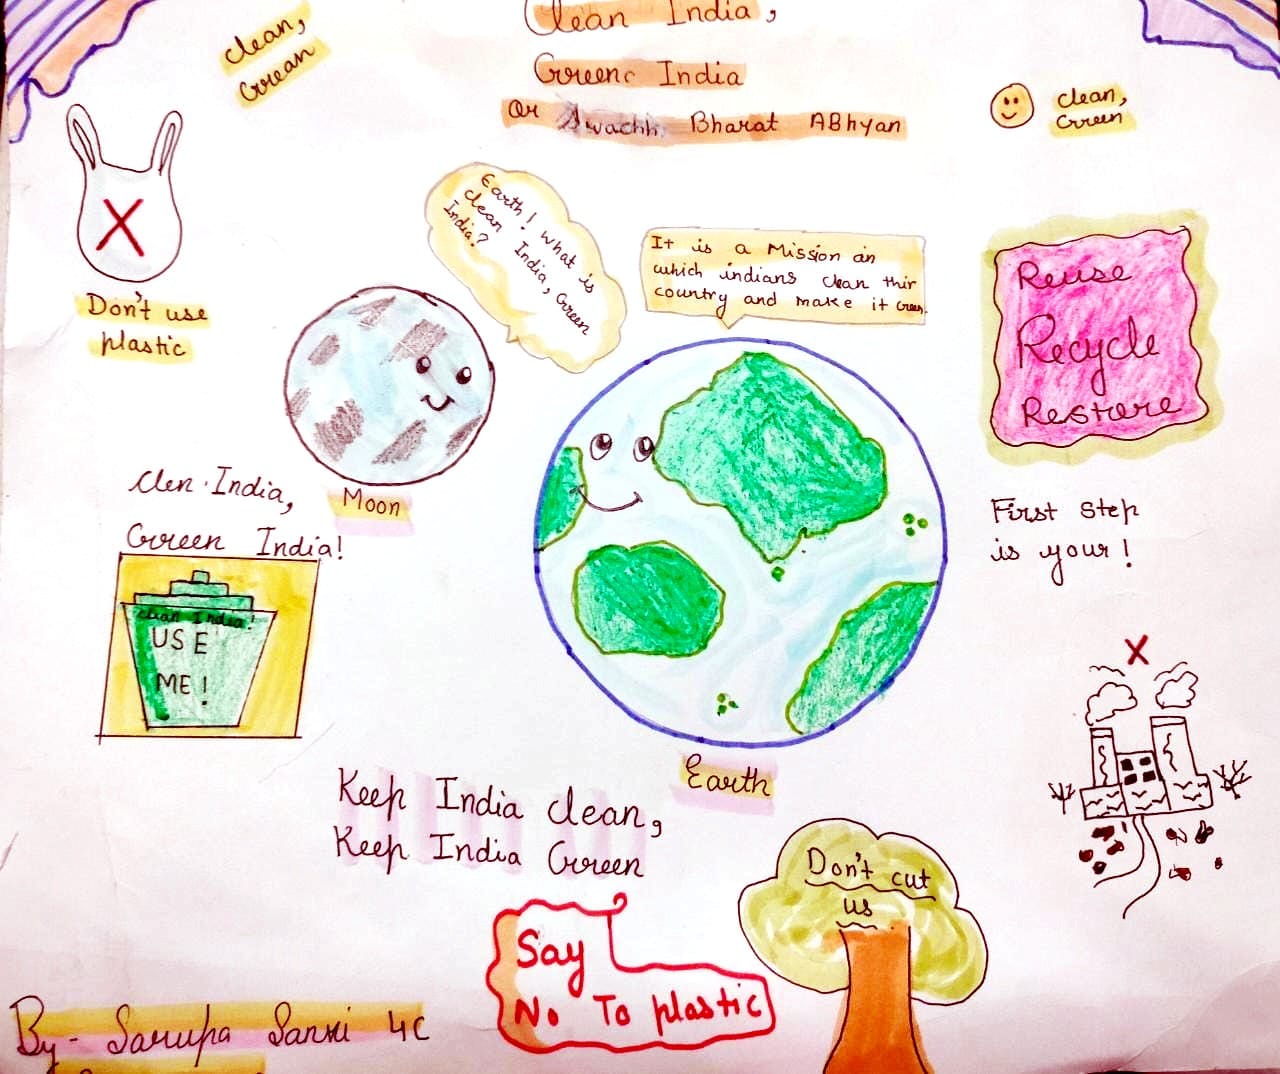 Clean India,
Green India
Or Swachh Bharat ABhyan
Clean,
Grean
Clean,
Green
Earth! What is
clean India, Green
India?
It is a Mission in
which indians clean thir
country and make it Green.
Don't use
plastic
Moon
Reuse
Recycle
Restore
Clen India,
Green India!
clean India!
USE
ME!
First Step
is your!
Earth
Keep India Clean,
Keep India Green
Don't cut
us
Say
No To plastic
By- Sarupa 4C